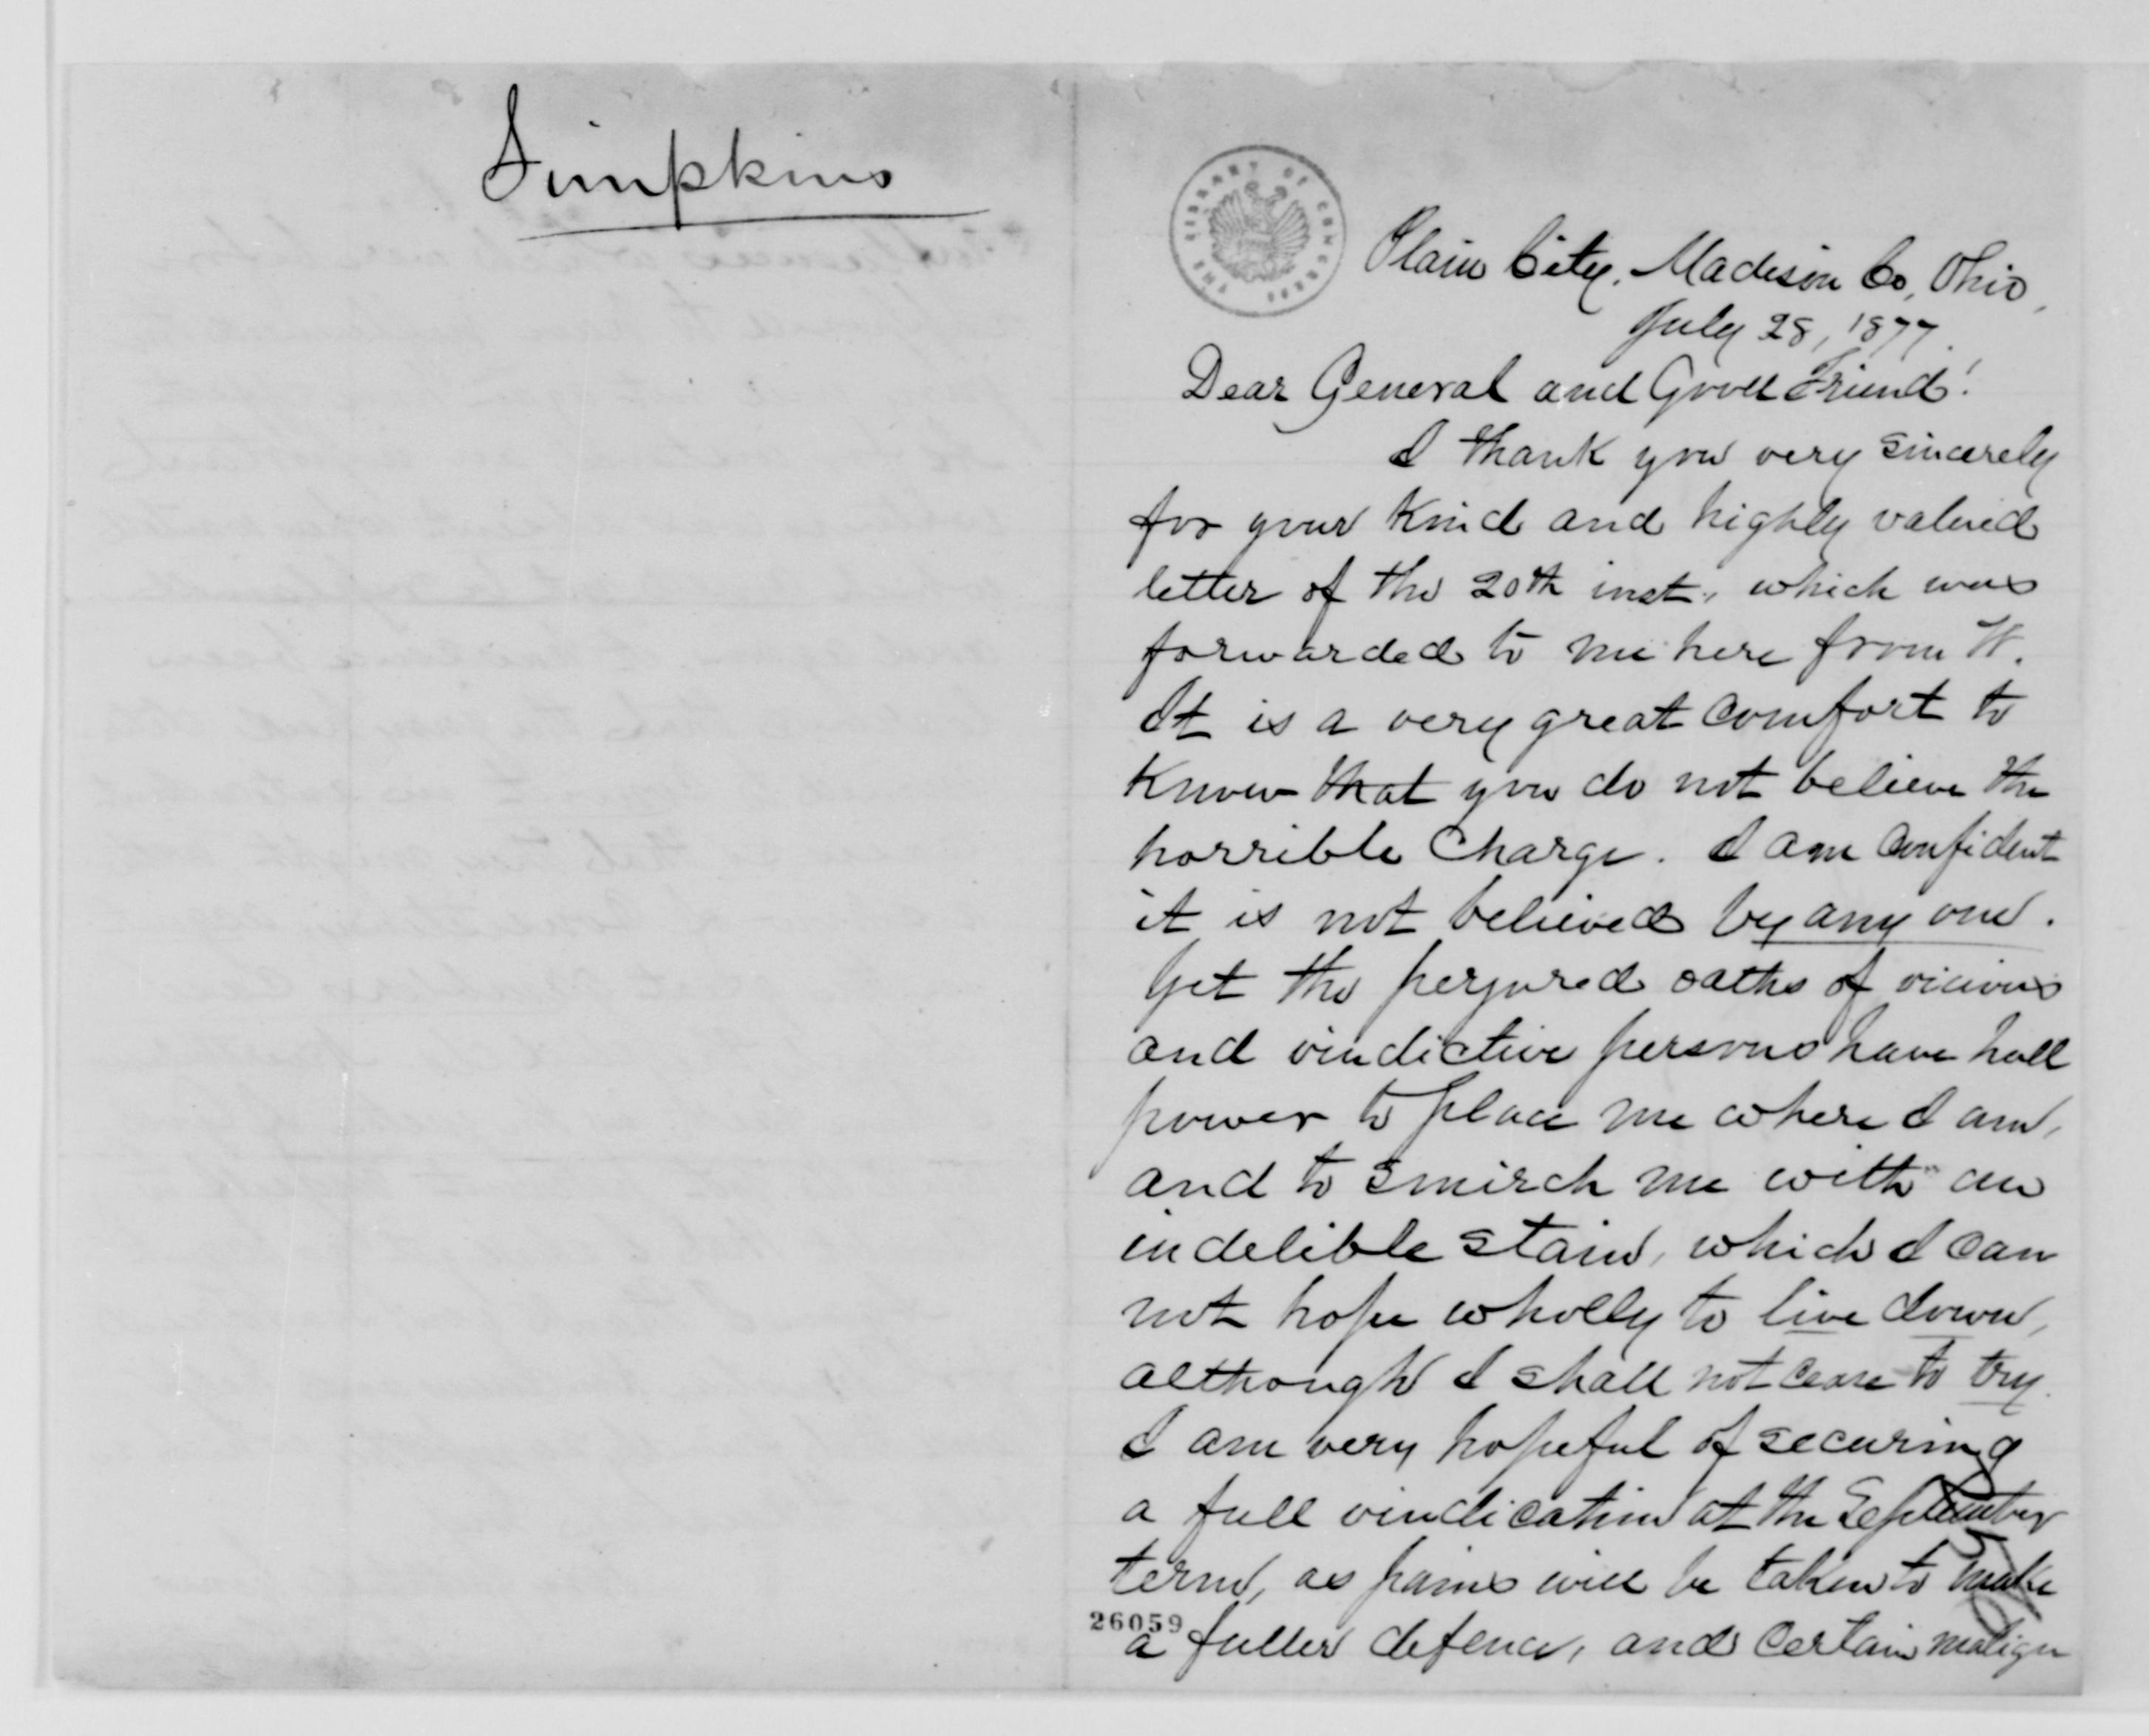 Simpkins
THE LIBRARY OF CONGRESS
Plain City, Madison Co, Ohio,
July 28, 1877.
Dear General and Good Friend!
I thank you very sincerely
for your kind and highly valued
letter of the 20th inst., which was
forwarded to me here from W.
It is a very great comfort to
know that you do not believe the
horrible charge. I am confident
it is not believed by any one.
Yet the perjured oaths of vicious
and vindictive persons have had
power to place me where I am,
and to smirch me with an
indelible stain, which I can
not hope wholly to live down,
although I shall not cease to try.
I am very hopeful of securing
a full vindication at the September
term, as pains will be taken to make
26059
a fuller defence, and certain malign